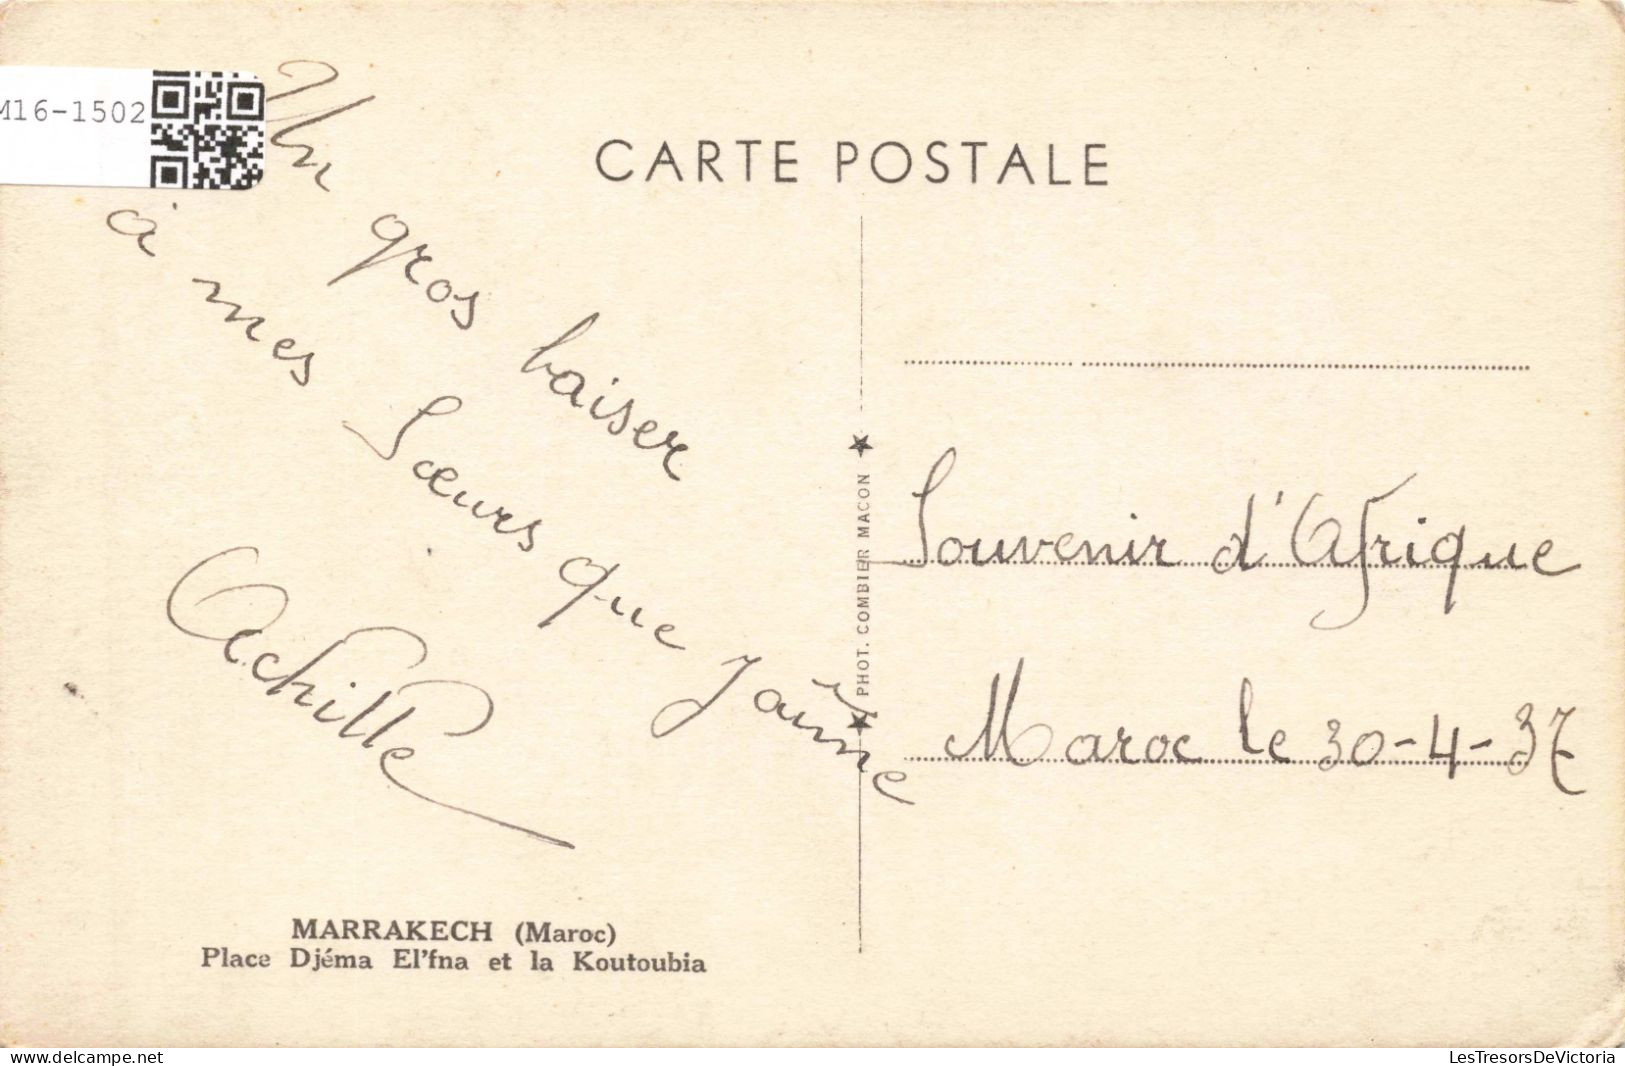 M16-1502
CARTE POSTALE
Un gros baiser
à mes Sœurs que J'aime
Achille
PHOT. COMBIER MACON
Souvenir d'Afrique
Maroc le 30-4-37
MARRAKECH (Maroc)
Place Djéma El'fna et la Koutoubia
www.delcampe.net
LesTresorsDeVictoria